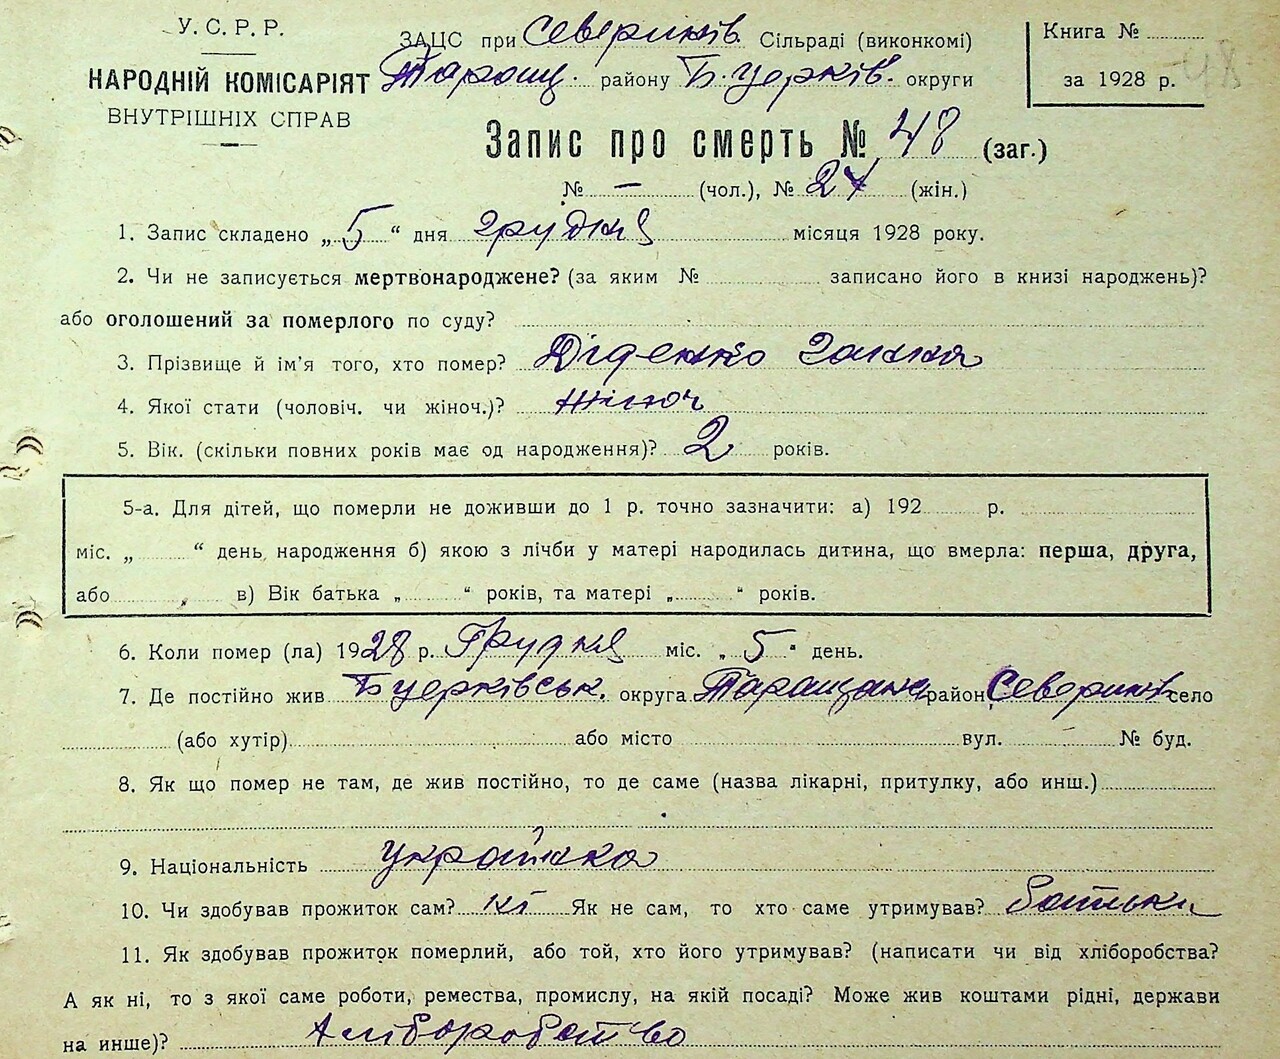 У. С. Р. Р.
НАРОДНІЙ КОМІСАРІЯТ
ВНУТРІШНІХ СПРАВ
ЗАЦС при Северинів. Сільраді (виконкомі)
Таращ. району Б. Церків. округи
Книга №
за 1928 р.
48
Запис про смерть № 48 (заг.)
№ — (чол.), № 24 (жін.)
1. Запис складено „ 5 “ дня грудня місяця 1928 року.
2. Чи не записується мертвонароджене? (за яким № записано його в книзі народжень)?
або оголошений за померлого по суду?
3. Прізвище й ім’я того, хто помер? Діденко Ганна
4. Якої стати (чоловіч. чи жіноч.)? жіноч
5. Вік. (скільки повних років має од народження)? 2 років.
5-а. Для дітей, що померли не доживши до 1 р. точно зазначити: а) 192 р.
міс. „ “ день народження б) якою з лічби у матері народилась дитина, що вмерла: перша, друга,
або , в) Вік батька „ “ років, та матері „ “ років.
6. Коли помер (ла) 1928 р. Грудня міс. „ 5 “ день.
7. Де постійно жив Б Церківськ. округа Таращан район Северинів село
(або хутір) або місто вул. № буд.
8. Як що помер не там, де жив постійно, то де саме (назва лікарні, притулку, або инш.)
9. Національність українка
10. Чи здобував прожиток сам? ні Як не сам, то хто саме утримував? батьки
11. Як здобував прожиток померлий, або той, хто його утримував? (написати чи від хліборобства?
А як ні, то з якої саме роботи, ремества, промислу, на якій посаді? Може жив коштами рідні, держави
на инше)? хліборобство